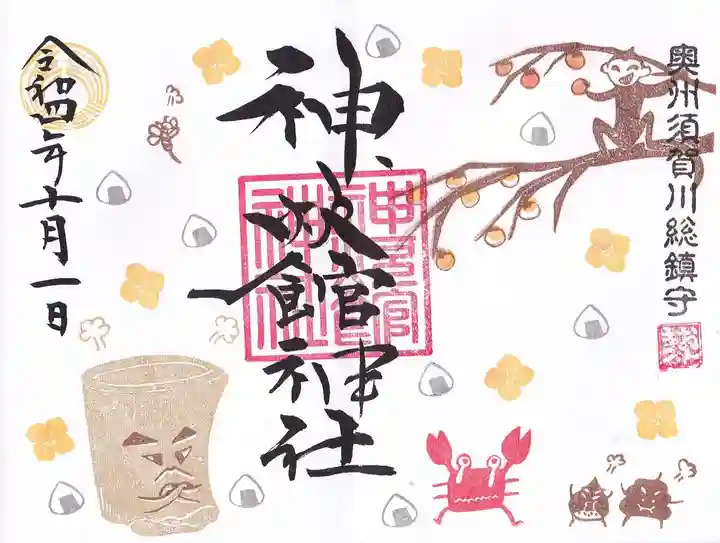 奥州須賀川総鎮守
神炊館神社
令和四年十月一日